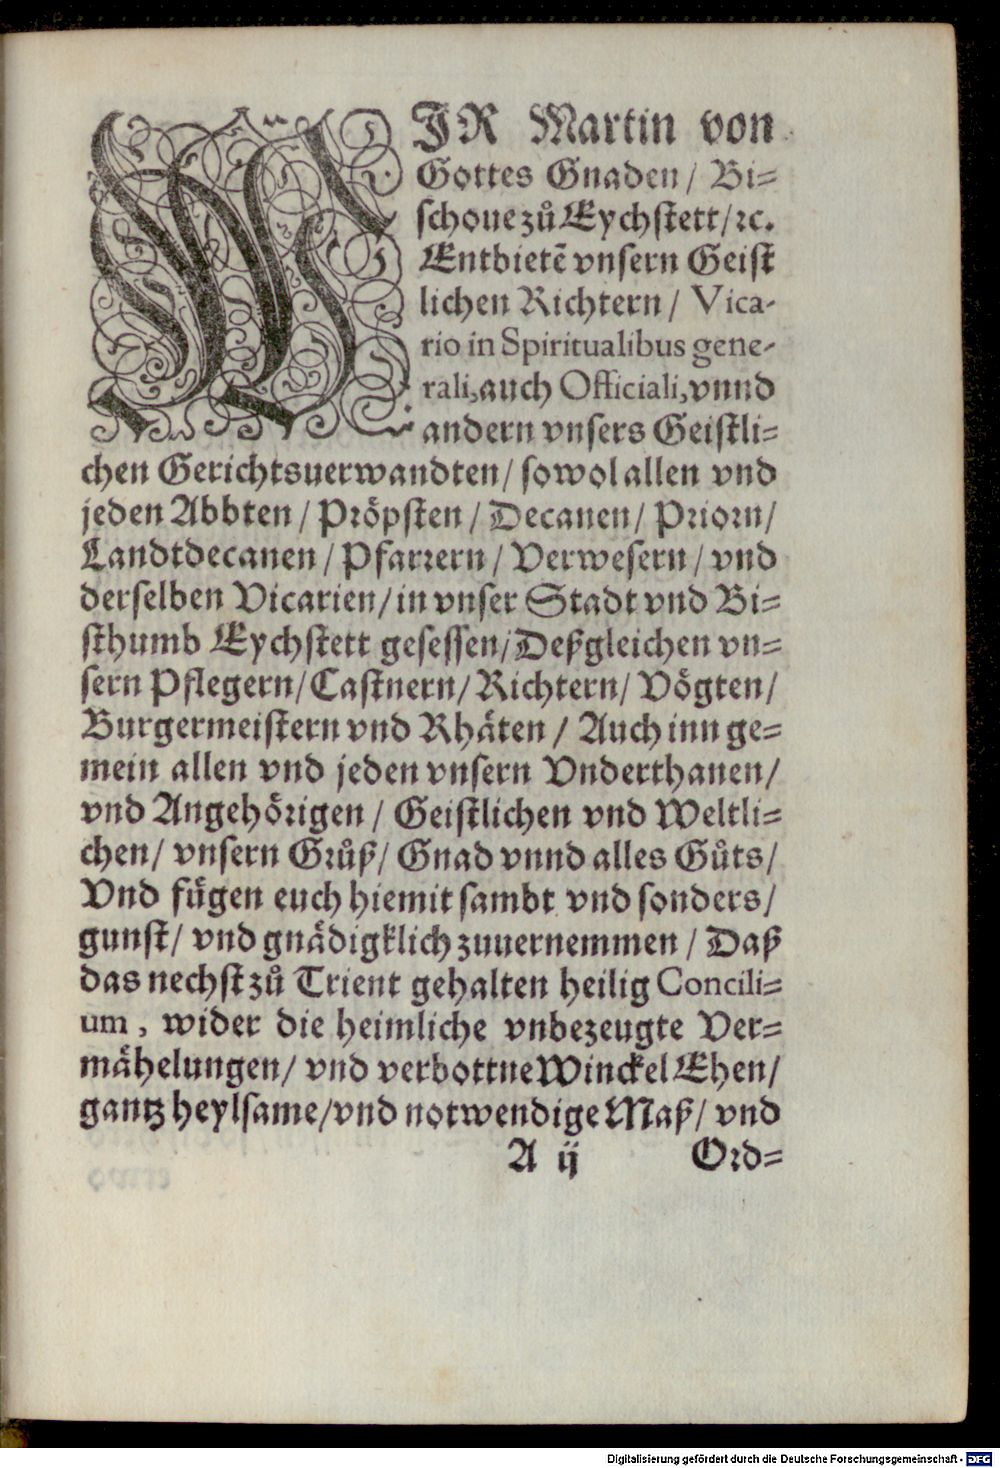 WJR Martin von
Gottes Gnaden / Bi=
schoue zů Eychstett / ꝛc.
Entbietẽ vnsern Geist
lichen Richtern / Vica-
rio in Spiritualibus gene-
rali, auch Officiali, vnnd
andern vnsers Geistli=
chen Gerichtsuerwandten / sowol allen vnd
jeden Abbten / Pröpsten / Decanen / Priorn /
Landtdecanen / Pfarrern / Verwesern / vnd
derselben Vicarien / in vnser Stadt vnd Bi=
sthumb Eychstett gesessen / Deßgleichen vn=
sern Pflegern / Castnern / Richtern / Vögten /
Burgermeistern vnd Rhäten / Auch inn ge=
mein allen vnd jeden vnsern Vnderthanen /
vnd Angehörigen / Geistlichen vnd Weltli=
chen / vnsern Grůß / Gnad vnnd alles Gůts /
Vnd fügen euch hiemit sambt vnd sonders /
gunst / vnd gnädigklich zuuernemmen / Daß
das nechst zů Trient gehalten heilig Concili=
um, wider die heimliche vnbezeugte Ver=
mähelungen / vnd verbottne Winckel Ehen /
gantz heylsame / vnd notwendige Maß / vnd
A ij Ord=
Digitalisierung gefördert durch die Deutsche Forschungsgemeinschaft - DFG